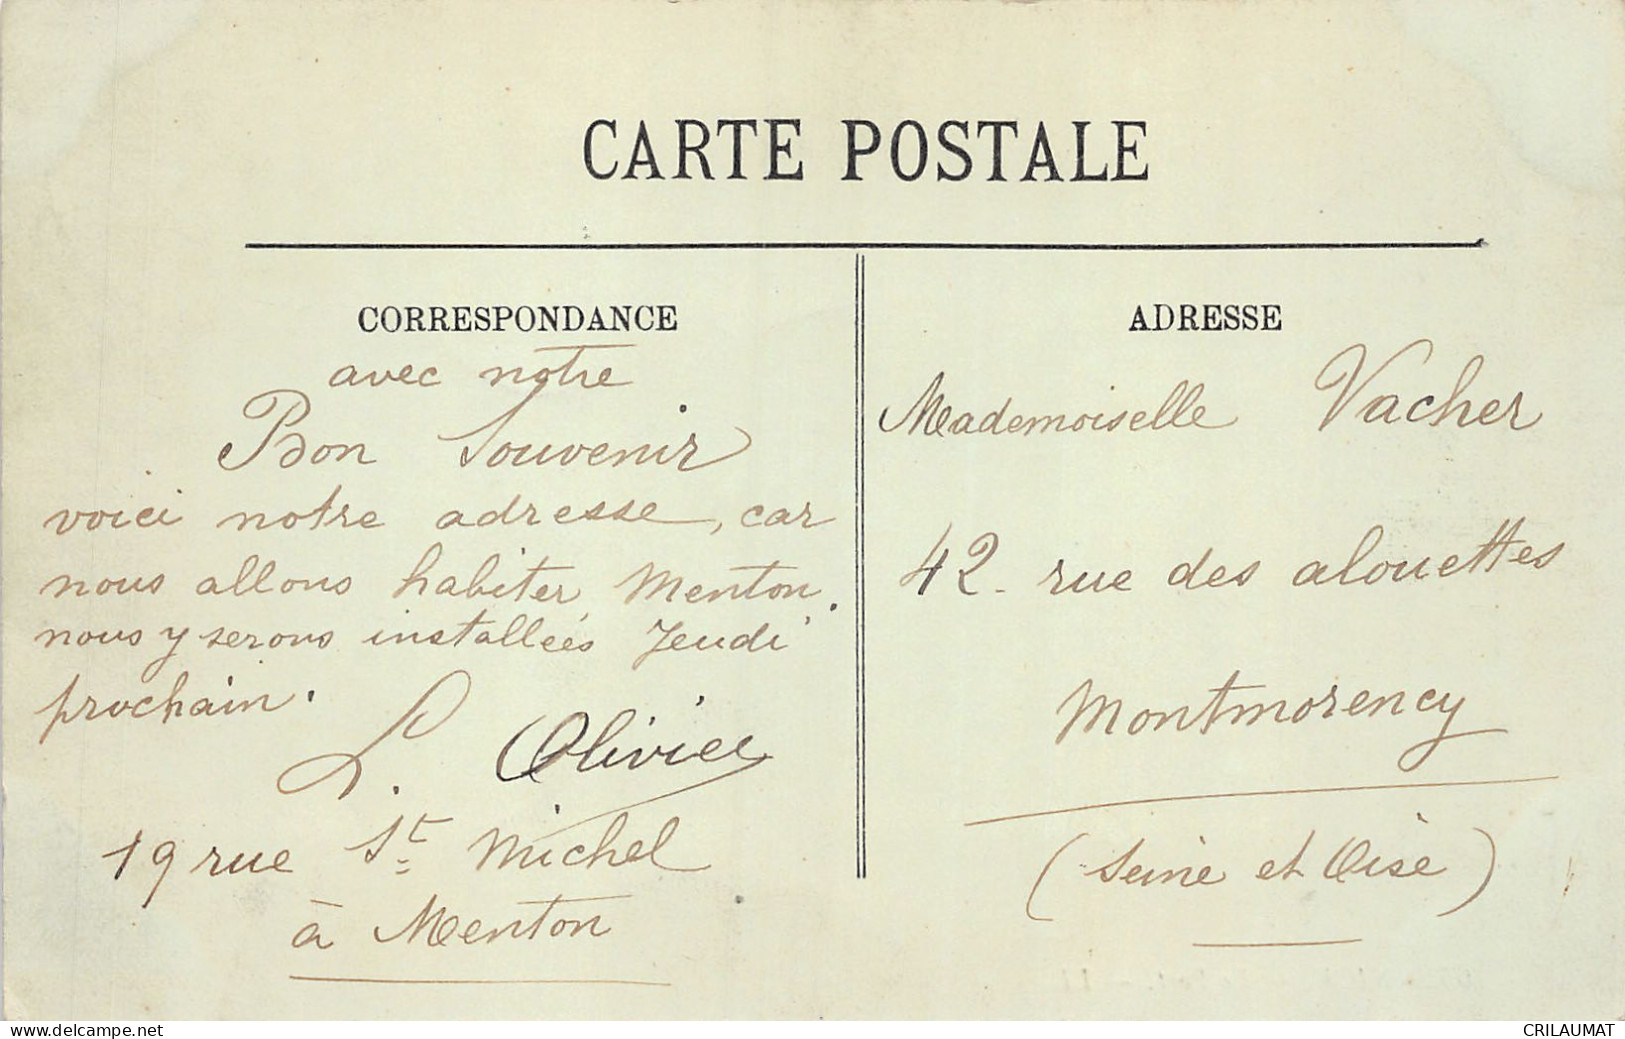 CARTE POSTALE
CORRESPONDANCE
avec notre
Bon Souvenir
voici notre adresse, car
nous allons habiter Menton.
nous y serons installées Jeudi
prochain.
L. Olivier
19 rue St. Michel
à Menton
ADRESSE
Mademoiselle Vacher
42. rue des alouettes
Montmorency
(Seine et Oise)
www.delcampe.net
CRILAUMAT